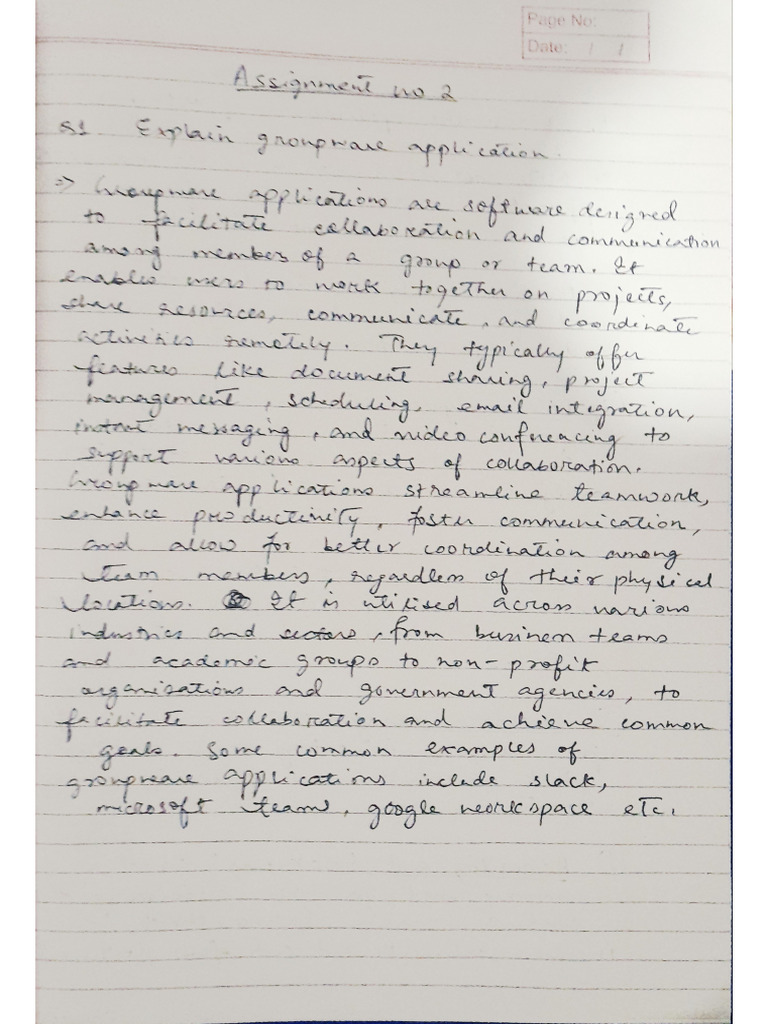 Page No:
Date: / /
Assignment no 2
Q1 Explain groupware application.
=> Groupware applications are software designed
to facilitate collaboration and communication
among members of a group or team. It
enables users to work together on projects,
share resources, communicate, and coordinate
activities remotely. They typically offer
features like document sharing, project
management, scheduling, email integration,
instant messaging, and video conferencing to
support various aspects of collaboration.
Groupware applications streamline teamwork,
enhance productivity, foster communication,
and allow for better coordination among
team members, regardless of their physical
locations. It is utilised across various
industries and sectors, from business teams
and academic groups to non-profit
organisations and government agencies, to
facilitate collaboration and achieve common
goals. Some common examples of
groupware applications include slack,
microsoft teams, google workspace etc.